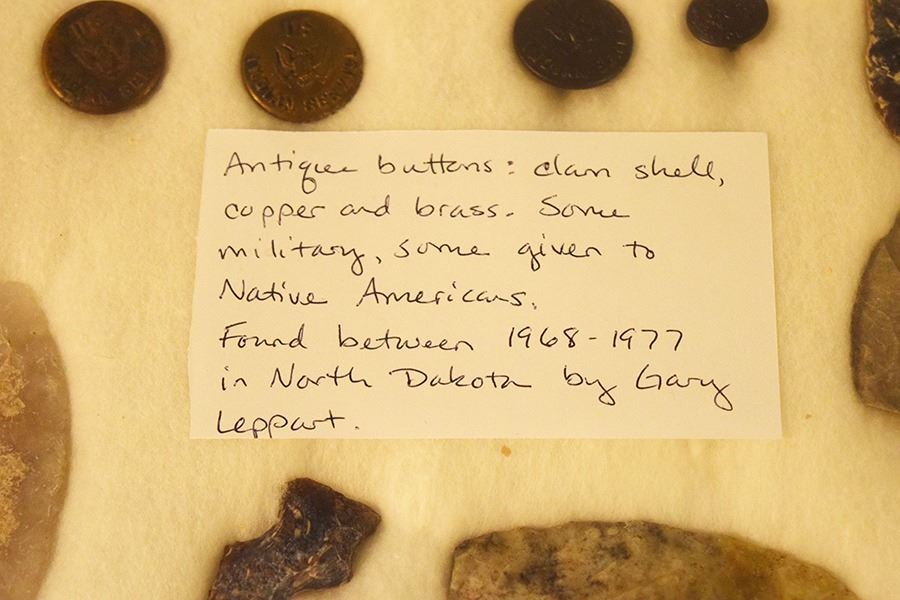 US
US
INDIAN SERVICE
Antique buttons: clam shell,
copper and brass. Some
military, some given to
Native Americans.
Found between 1968-1977
in North Dakota by Gary
Leppart.